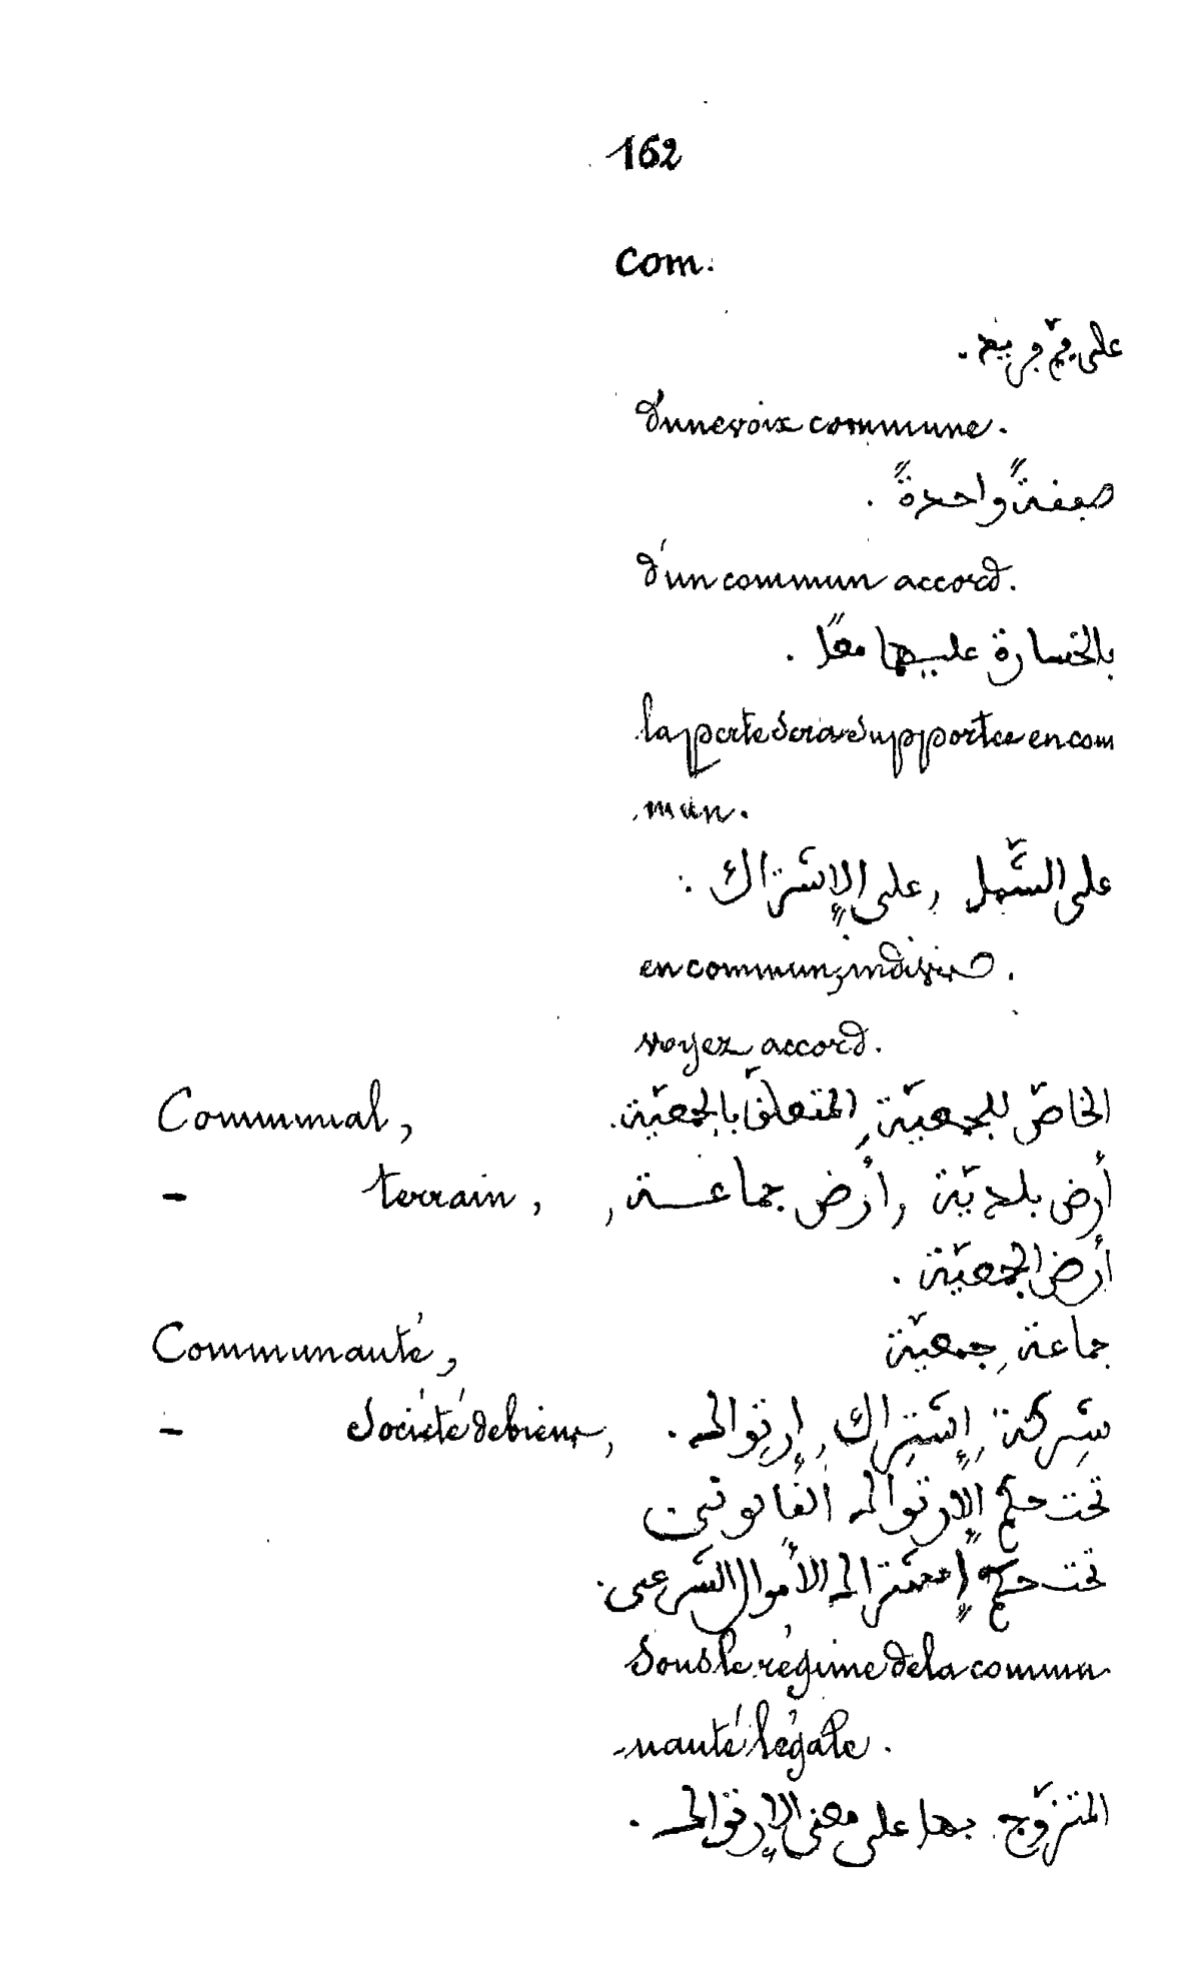 162
Com.
على فم فريد.
d'une voix commune.
صفقةً واحدةً.
d'un commun accord.
بالخسارة عليهما معًا.
la perte sera supportée en com
mun.
على الشمل، على الإشتراك.
en commun, indivis.
voyez accord.
Communal, الخاصّ للجمعيّة، المتعلّق بالجمعيّة.
— terrain, أرض بلديّة، أرض جماعة،
أرض الجمعيّة.
Communauté, جماعة، جمعيّة
— société de biens, شِركة، إشتِراك،
تحت حكم
تحت حكم الأموال الشرعي.
sous le régime de la commu
-nauté légale.
المتزوّج بها على معنى